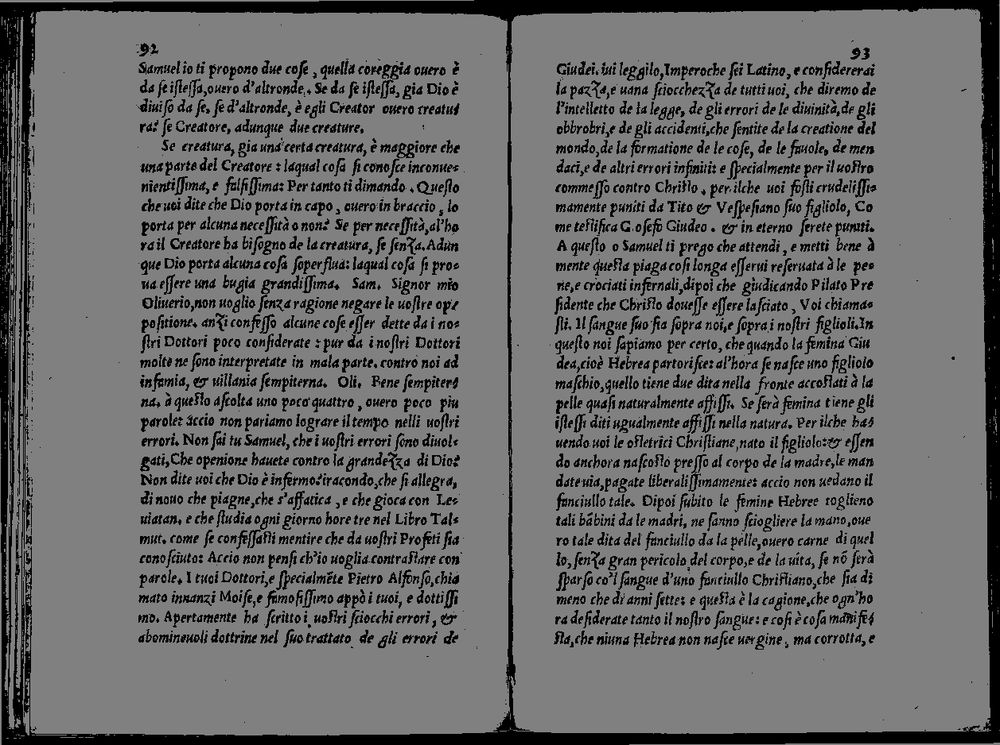 92
Samuel io ti propono due cose, quella coreggia ouero è
da se istessa, ouero d'altronde. Se da se istessa, gia Dio è
diuiso da se, se d'altronde, è egli Creator ouero creatu:
ra? se Creatore, adunque due creature.
Se creatura, gia una certa creatura, è maggiore che
una parte del Creatore: laqual cosa si conosce inconue:
nientissima, e falsissima: Per tanto ti dimando. Questo
che uoi dite che Dio porta in capo, ouero in braccio, lo
porta per alcuna necessità o non? Se per necessità, al'ho
ra il Creatore ha bisogno de la creatura, se senza. Adun
que Dio porta alcuna cosa superflua: laqual cosa si pro:
ua essere una bugia grandissima. Sam. Signor mio
Oliuerio, non uoglio senza ragione negare le uostre op:
positione. anzi confesso alcune cose esser dette da i no:
stri Dottori poco considerate: pur da i nostri Dottori
molte ne sono interpretate in mala parte. contro noi ad
infamia, & uillania sempiterna. Oli. Bene sempiter:
na. à questo ascolta uno poco quattro, ouero poco piu
parole: accio non pariamo lograre il tempo nelli uostri
errori. Non sai tu Samuel, che i uostri errori sono diuol:
gati, Che openione hauete contro la grandezza di Dio?
Non dite uoi che Dio è infermo? iracondo, che si allegra,
di nouo che piagne, che s'affatica, e che gioca con Le:
uiatan. e che studia ogni giorno hore tre nel Libro Tal:
mut. come se confessasti mentire che da uostri Profeti sia
conosciuto: Accio non pensi ch'io uoglia contrastare con
parole. I tuoi Dottori, e specialmẽte Pietro Alfonso, chia
mato innanzi Moise, e famosissimo appò i tuoi, e dottissi
mo. Apertamente ha scritto i uostri sciocchi errori, &
abomineuoli dottrine nel suo trattato de gli errori de
93
Giudei. iui leggilo, Imperoche sei Latino, e considererai
la pazza, e uana sciocchezza de tutti uoi, che diremo de
l'intelletto de la legge, de gli errori de le diuinità, de gli
obbrobri, e de gli accidenti, che sentite de la creatione del
mondo, de la formatione de le cose, de le fauole, de men
daci, e de altri errori infiniti: e specialmente per il uostro
commesso contro Christo, per ilche uoi fosti crudelissi:
mamente puniti da Tito & Vespesiano suo figliolo, Co
me testifica Gioseso Giudeo. & in eterno serete puniti.
A questo o Samuel ti prego che attendi, e metti bene à
mente questa piaga cosi longa esserui reseruata à le pe:
ne, e crociati infernali, dipoi che giudicando Pilato Pre
sidente che Christo douesse essere lasciato, Voi chiama:
sti. Il sangue suo sia sopra noi, e sopra i nostri figlioli. In
questo noi sapiamo per certo, che quando la femina Giu
dea, cioè Hebrea partorisce: al'hora se nasce uno figliolo
maschio, quello tiene due dita nella fronte accostati à la
pelle quasi naturalmente affissi. Se serà femina tiene gli
istessi diti ugualmente affissi nella natura. Per ilche ha:
uendo uoi le ostetrici Christiane, nato il figliolo: & essen
do anchora nascosto presso al corpo de la madre, le man
date uia, pagate liberalissimamente: accio non uedano il
fanciullo tale. Dipoi subito le femine Hebree toglieno
tali bãbini da le madri, ne sanno sciogliere la mano, oue
ro tale dita del fanciullo da la pelle, ouero carne di quel
lo, senza gran pericolo del corpo, e de la uita, se nõ serà
sparso co'l sangue d'uno fanciullo Christiano, che sia di
meno che di anni sette: e questa è la cagione, che ogn'ho
ra desiderate tanto il nostro sangue: e cosi è cosa manife:
sta, che niuna Hebrea non nasce uergine, ma corrotta, e